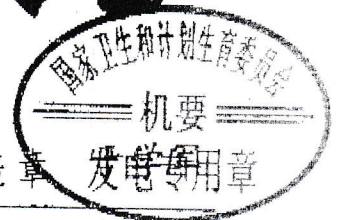 国家卫生和计划生育委员会
机要
章 发电专用章